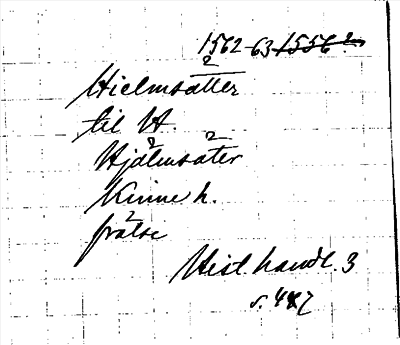 1562-63 1556?
Hielmsätter
til H.
Hjälmsäter
Kinne h.
frälse
Hist. handl. 3
s. 47